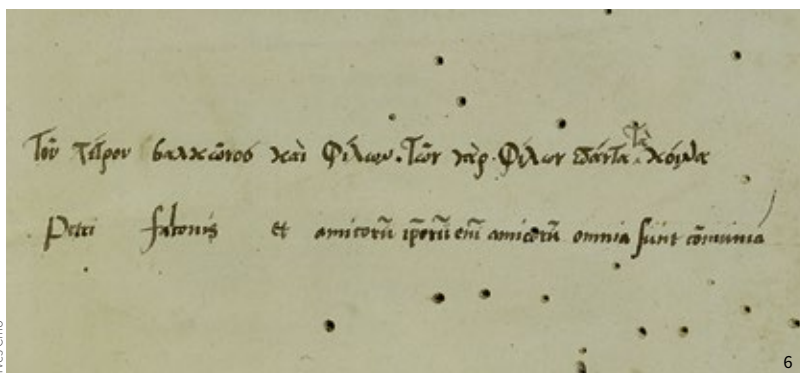 Τοῦ πέτρου βαλκῶνος καὶ Φίλων. Τῶν γὰρ Φίλων πάντα τὰ κόινα
Petri falconis et amicorū ipsorū enī amicorū omnia sunt cōmunia
6